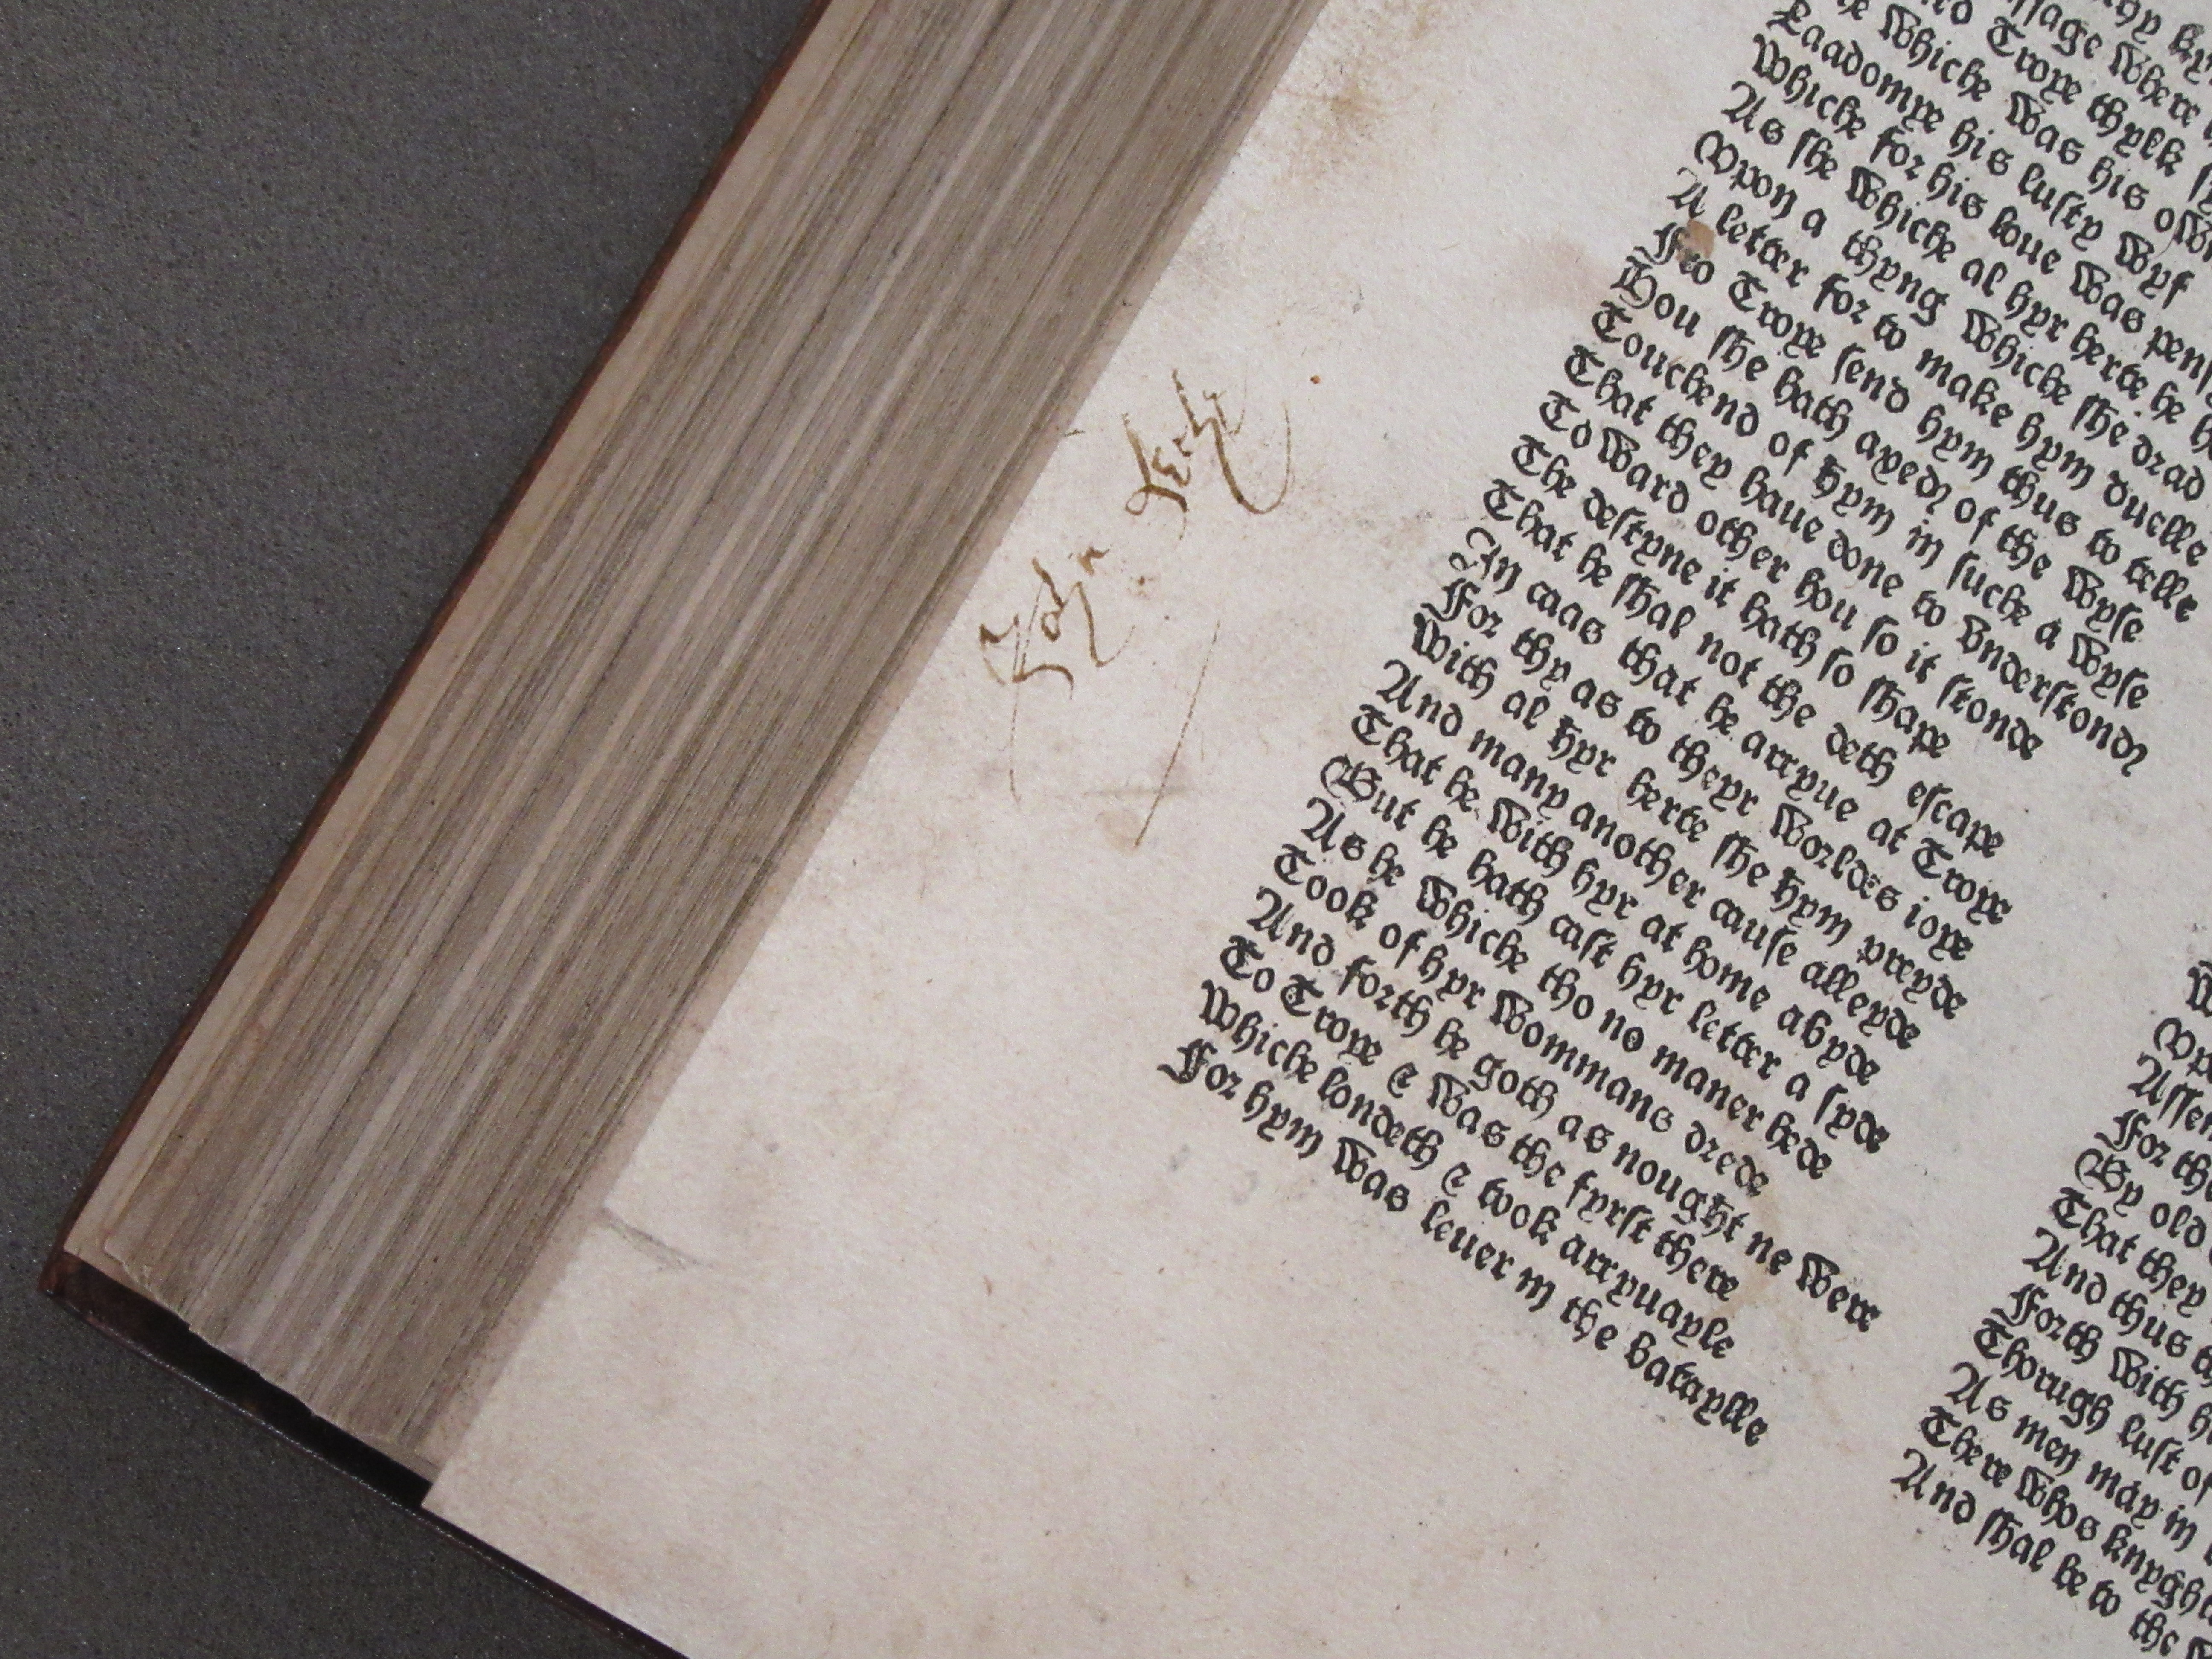 John
thy
ssage where
Troye thylk
whiche was his
Laadomye his lusty wyf
Whiche for his loue was
As she whiche al hyr herte he
Vpon a thyng whiche she drad
A letter for to make hym duelle
Fro Troye send hym thus to telle
Hou she hath axed of the wyse
Touchend of hym in suche a wyse
That they haue done to vnderstond
Toward other hou so it stonde
The destyne it hath so shape
That he shal not the deth escape
In caas that he arryue at Troye
For thy as to theyr worldes ioye
With al hyr herte she hym preyde
And many another cause alleyde
That he with hyr at home abyde
But he hath cast hyr letter a syde
As he whiche tho no maner hede
Took of hyr wommans drede
And forth he goth as nought ne were
To Troye & was the fyrst there
Whiche londeth & took arryuayle
For hym was leuer in the bataylle
For
By old
That they
And thus
Forth with
Thorugh lust of
As men may in
There whos
And shal be to the